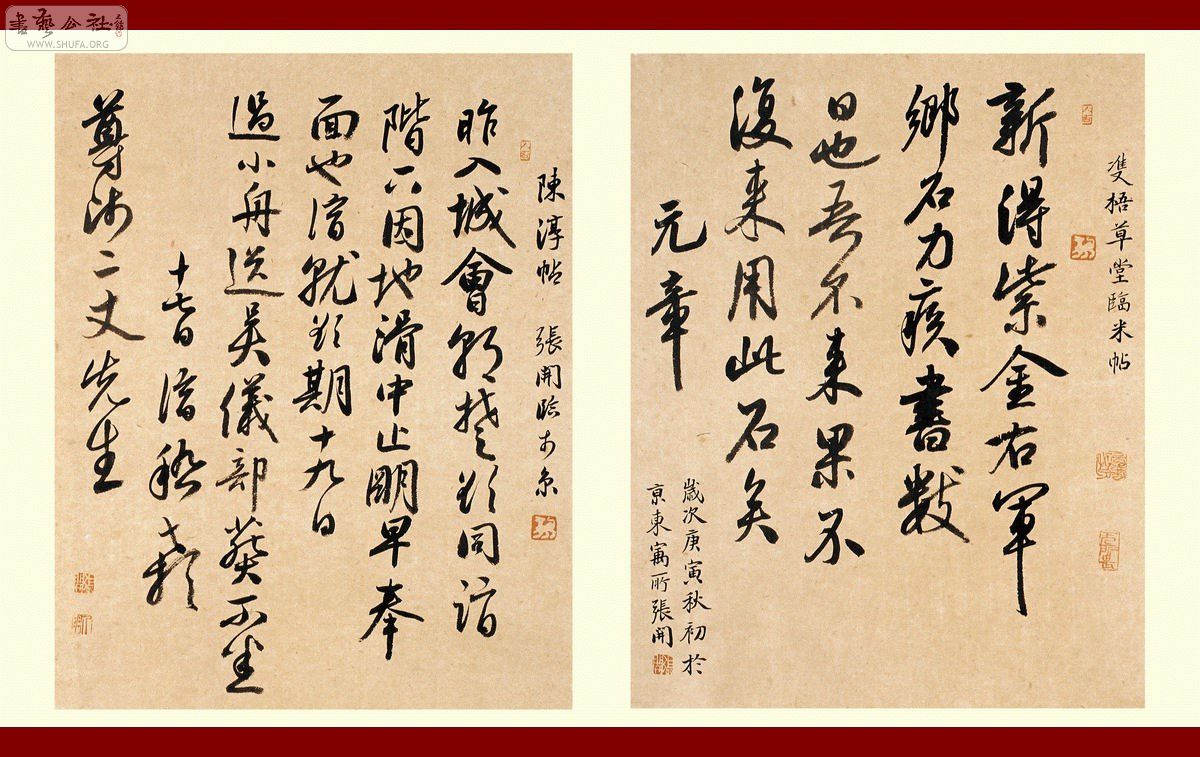 書藝公社
WWW.SHUFA.ORG
雙梧草堂臨米帖
新得紫金右軍
鄉石力疾書數
日也吾不来果不
復来用此石矣
元章
歲次庚寅秋初於
京東寓所張開
陳淳帖 張開臨於京
昨入城會 同詣
階下因地滑中止明早奉
面也 就 期十九日
過小舟送吳儀部葬不
十七日 稽顙
尊沙二丈先生